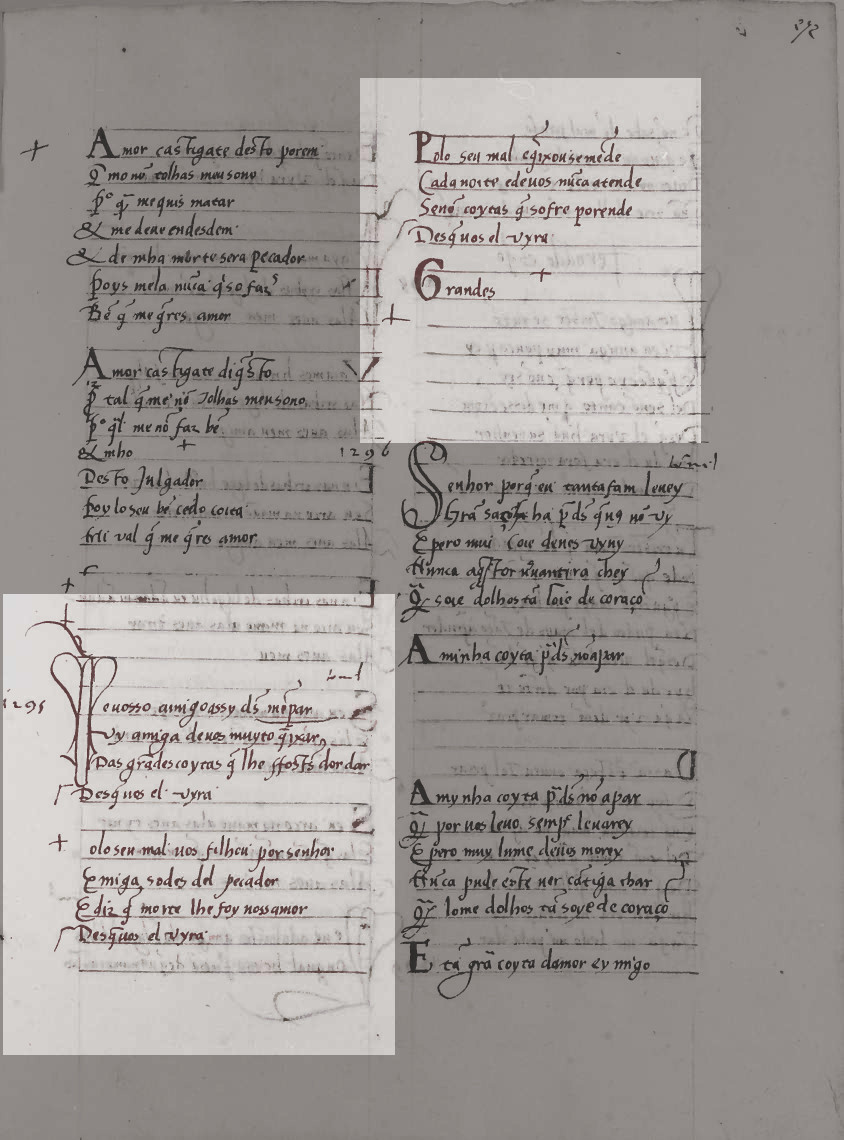 Amor castigate desto porem
q̃ mo nõ tolhas meu sono
p̃o q̃ me quis matar
& me deue en desdem
& de mha morte sera pecador
Poys mela nũca q̃so faz̃
Bẽ q̃ me q̃res amor
Amor castigate diq̃sto
p̃ tal q̃ me nõ tolhas meu sono
p̃o q̃l me nõ faz bẽ
& mho
1296
Desto Julgador
Poylo seu bẽ cedo coita
mi val q̃ me q̃res amor
1295
evosso amigo assy d̃s me par
vy amiga de uos muyto q̃ixar
Das grãdes coytas q̃ lhe fostes dor dar
Desq̃ uos el vyra
olo seu mal uos filhou por senhor
E miga sodes del pecador
E diz q̃ morte lhe foy uoss amor
Desq̃ uos el vyra
Polo seu mal eq̃ixouse me de
Cada noite e de uos nũca atende
Senõ coytas q̃ sofre porende
Desq̃ uos el vyra
Grandes
Senhor porq̃ eu tanta fam leuey
Grã ha p̃ d̃s q̃ u9 nõ vy
E pero mui
Nunca
Q̃ soie dolhos tã loie de coraçõ
A minha coyta p̃ d̃s nõ a par
A mynha coyta p̃ d̃s nõ a par
Q̃ por uos leuo semp̃ leuarey
E pero muy lume deuos morey
Nũca pude este uer cãtiga char
Q̃ lome dolhos tã soye de coraçõ
E tã grã coyta damor ey migo